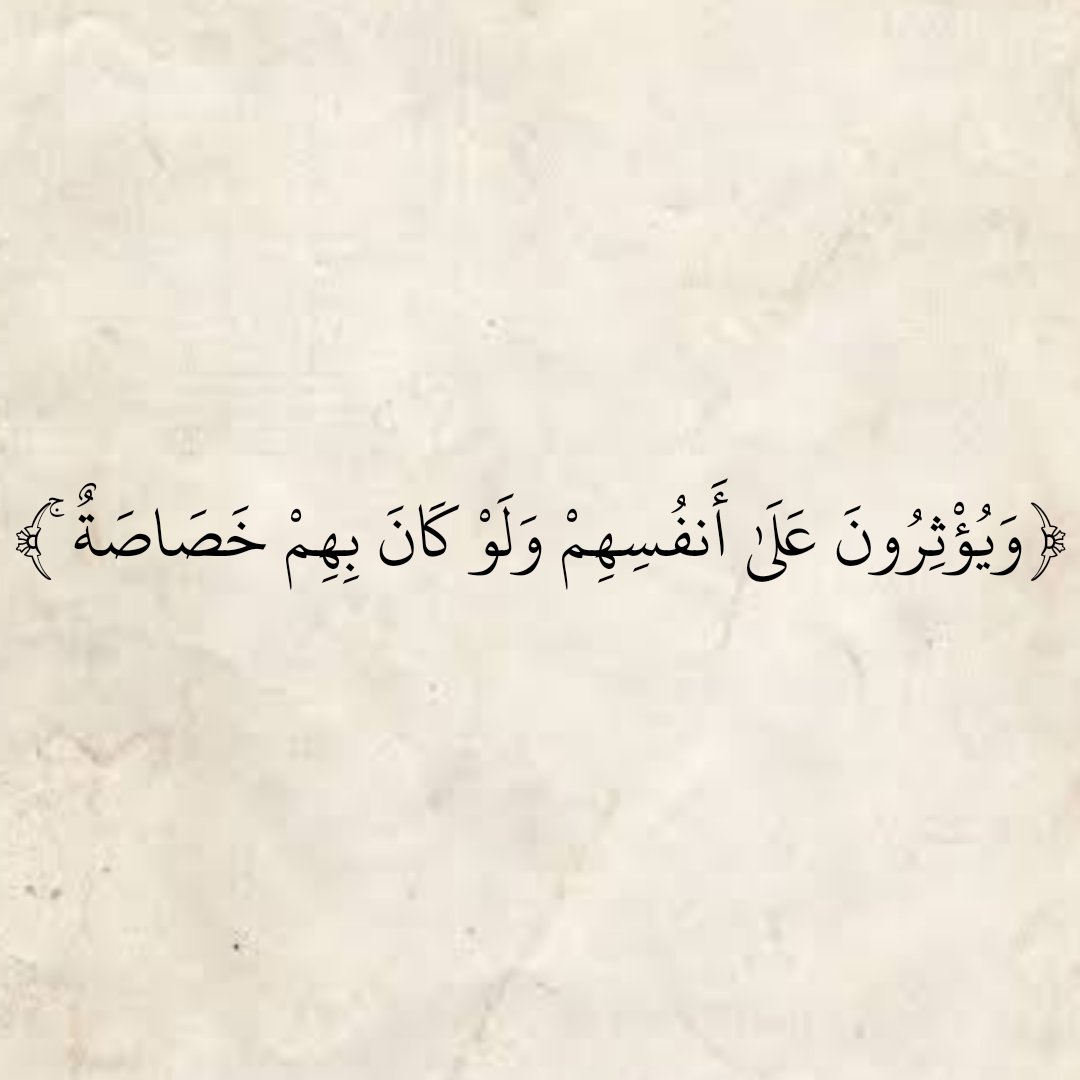 ﴿وَيُؤْثِرُونَ عَلَىٰ أَنفُسِهِمْ وَلَوْ كَانَ بِهِمْ خَصَاصَةٌ ۚ﴾